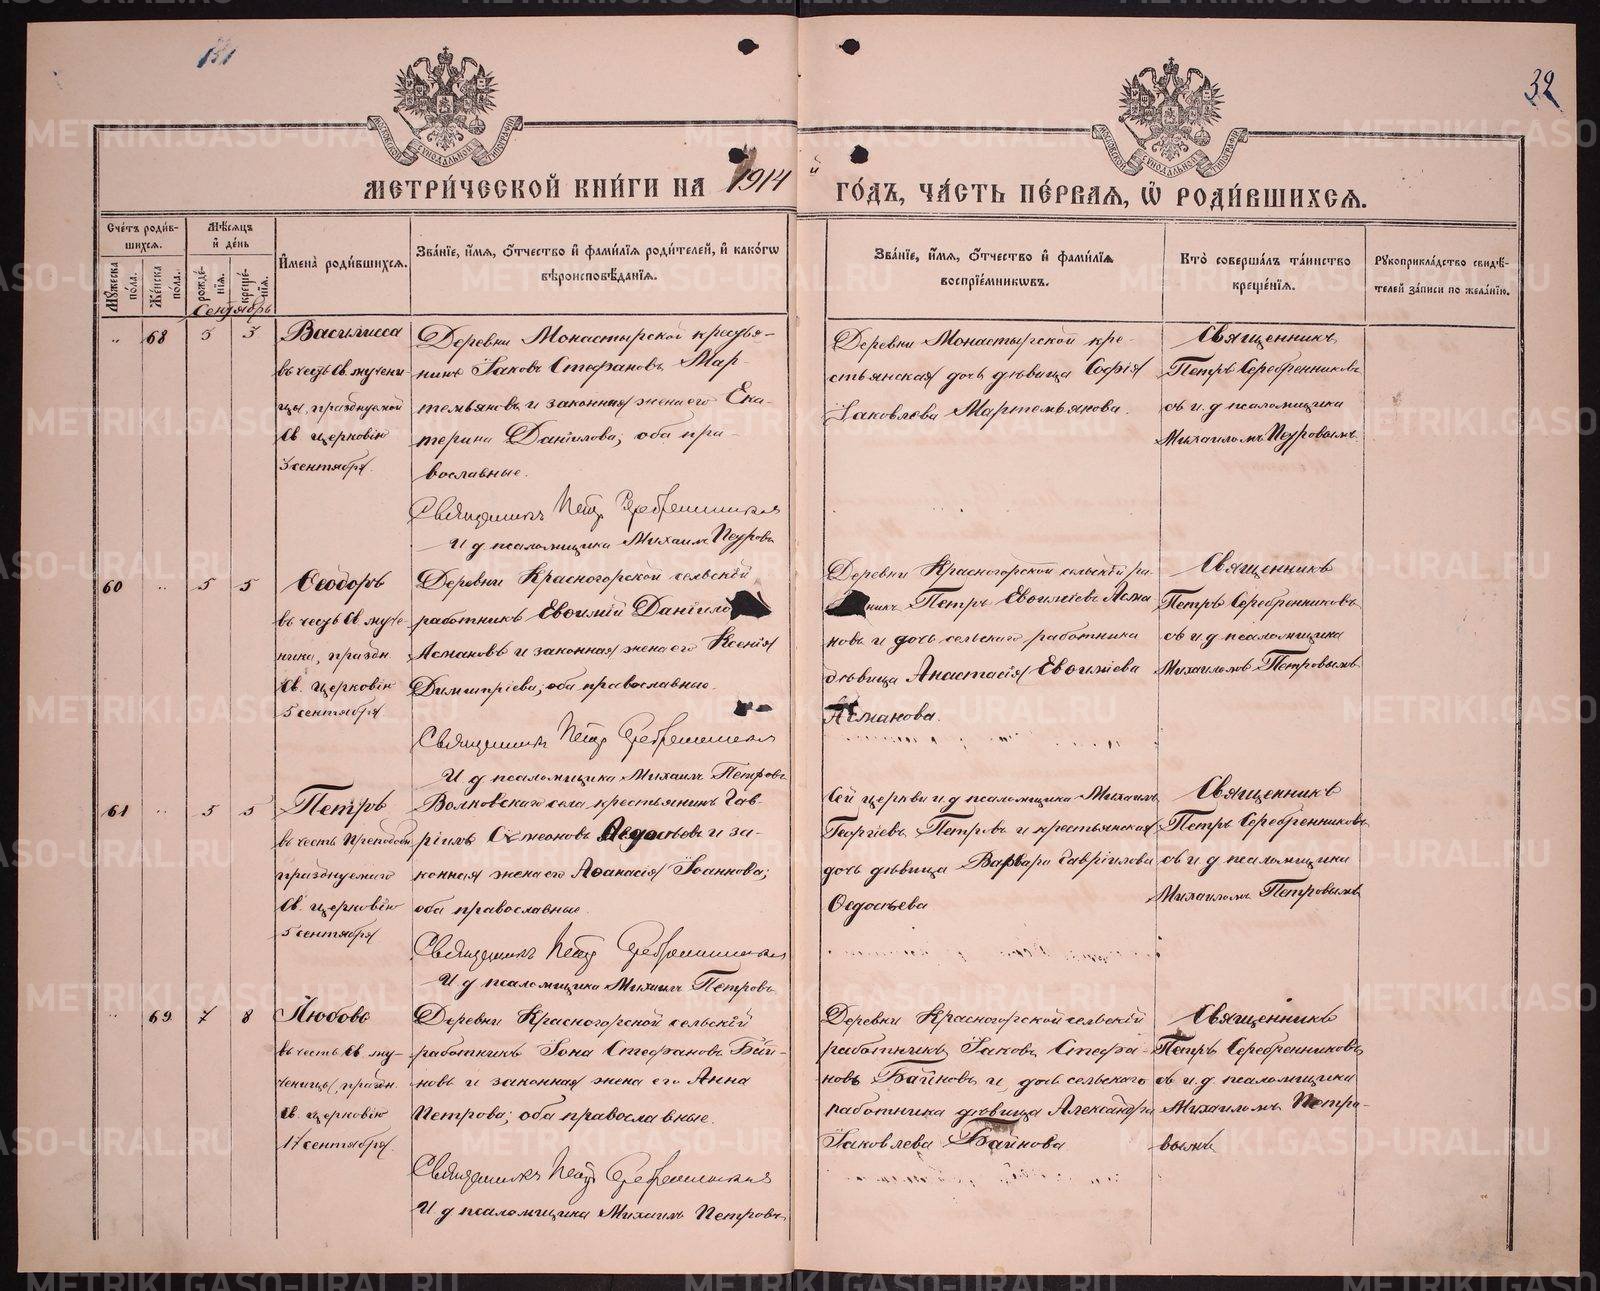 32
МЕТРИ́ЧЕСКОЙ КНИ́ГИ НА 1914 й ГО́ДЪ, ЧА́СТЬ ПЕ́РВАЯ, Ѡ҆ РОДИ́ВШИХСЯ.
Сче́тъ роди́в-
шихся.
Мꙋ́жеска по́ла.
Же́нска по́ла.
Мѣ́сяцъ
и҆ де́нь
рожде́-
нїя.
креще́-
нїя.
Сентябрь
И҆мена̀ роди́вшихся.
Зва́нїе, и҆́мя, ѻ҆́тчество и҆ фами́лїя роди́телей, и҆ како́гѡ
вѣроисповѣ́данїя.
Зва́нїе, и҆́мя, ѻ҆́тчество и҆ фами́лїя
воспрїе́мникѡвъ.
Кто̀ соверша́лъ та́инство
креще́нїя.
Рꙋкоприкла́дство свидѣ́-
телей за́писи по жела́нїю.
„ 68 3 3
Василисса
въ честь Св. мучени-
цы, празднуемой
Св. церковію
3 сентября.
Деревни Монастырской крестья-
нинъ Іаковъ Стефановъ Мар-
темьяновъ и законная жена его Ека-
терина Даніилова; оба пра-
вославные.
Священникъ Петръ Серебренников
И д псаломщика Михаилъ Петровъ
Деревни Монастырской кре-
стьянская дочь дѣвица Софія
Іаковлева Мартемьянова.
Священникъ
Петръ Серебренниковъ
съ и. д псаломщика
Михаиломъ Петровымъ
60 „ 5 5
Ѳеодоръ
въ честь Св. муче-
ника, праздн.
Св. церковію
5 сентября.
Деревни Красногорской сельскій
работникъ Евѳимій Даніило
Асмановъ и законная жена его Ксенія
Димитріева; оба православные.
Священникъ Петръ Серебренников
И д псаломщика Михаилъ Петровъ
Деревни Красногорской сельскій ра-
никъ Петръ Евѳиміевъ Асма
новъ и дочь сельскаго работника
дѣвица Анастасія Евѳиміева
Асманова.
Священникъ
Петръ Серебренниковъ
съ и. д псаломщика
Михаиломъ Петровымъ
61 „ 5 5
Петръ
въ честь Преподобн.
празднуемаго
Св. церковію
5 сентября
Волковскаго села крестьянинъ Гав-
ріилъ Симеоновъ Ѳедосѣевъ и за-
конная жена его Аѳанасія Іоаннова;
оба православные.
Священникъ Петръ Серебренников
И д псаломщика Михаилъ Петровъ
Сей церкви и. д псаломщика Михаилъ
Георгіевъ Петровъ и крестьянская
дочь дѣвица Варвара Гавріилова
Ѳедосѣева
Священникъ
Петръ Серебренниковъ
съ и. д псаломщика
Михаиломъ Петровымъ
„ 69 7 8
Любовь
въ честь Св. му-
ченицы, праздн.
Св. церковію
17 сентября.
Деревни Красногорской сельскій
работникъ Іона Стефановъ Бай-
новъ и законная жена его Анна
Петрова; оба православные.
Священникъ Петръ Серебренников
И д псаломщика Михаилъ Петровъ
Деревни Красногорской сельскій
работникъ Іаковъ Стефа-
новъ Байновъ и дочь сельскаго
работника дѣвица Александра
Іаковлева Байнова
Священникъ
Петръ Серебренниковъ
съ и. д. псаломщика
Михаиломъ Петро-
вымъ
METRIKI.GASO-URAL.RU